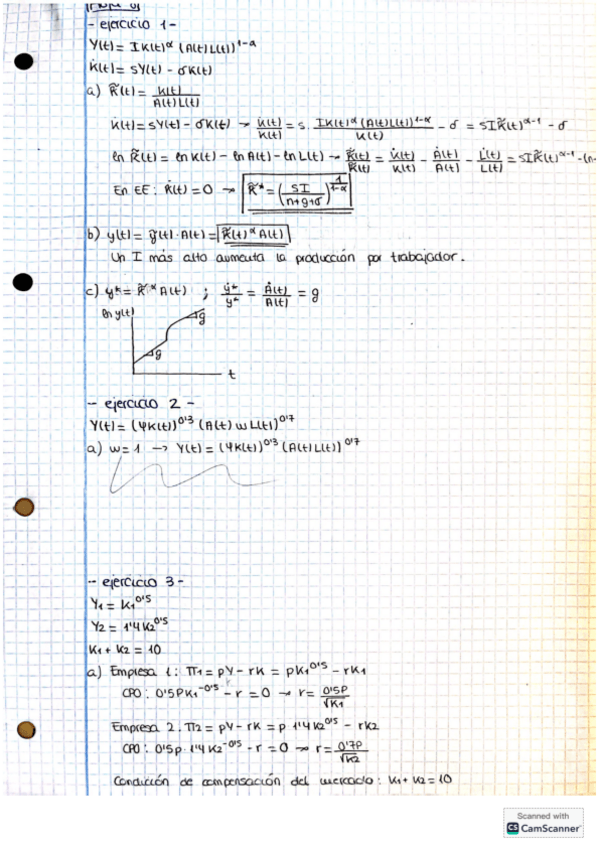 - ejercicio 1 -
Y(t) = I K(t)^α (A(t) L(t))^1-α
K̇(t) = sY(t) - σK(t)
a) K̃(t) = K(t) / A(t)L(t)
K(t) = sY(t) - σK(t) → K̇(t)/K(t) = s · IK(t)^α (A(t)L(t))^1-α / K(t) - σ = sIK̃(t)^α-1 - σ
ln K̃(t) = ln K(t) - ln A(t) - ln L(t) → K̃̇(t)/K̃(t) = K̇(t)/K(t) - Ȧ(t)/A(t) - L̇(t)/L(t) = sIK̃(t)^α-1 - (n+
En EE: K̇(t) = 0 → K̃* = (SI / n+g+σ)^1/1-α
b) y(t) = ỹ(t) · A(t) = K̃(t)^α A(t)
Un I más alto aumenta la producción por trabajador.
c) y* = K̃*^α A(t) ; ẏ*/y* = Ȧ(t)/A(t) = g
ln y(t)
g
g
t
- ejercicio 2 -
Y(t) = (ΨK(t))^0'3 (A(t) w L(t))^0'7
a) w = 1 → Y(t) = (ΨK(t))^0'3 (A(t) L(t))^0'7
- ejercicio 3 -
Y1 = K1^0'5
Y2 = 1'4 K2^0'5
K1 + K2 = 10
a) Empresa 1: Π1 = pY - rK = pK1^0'5 - rK1
CPO: 0'5PK1^-0'5 - r = 0 → r = 0'5P / √K1
Empresa 2: Π2 = pY - rK = p · 1'4 K2^0'5 - rK2
CPO: 0'5p · 1'4 K2^-0'5 - r = 0 → r = 0'7P / √K2
Condición de compensación del mercado: K1 + K2 = 10
Scanned with
CS CamScanner